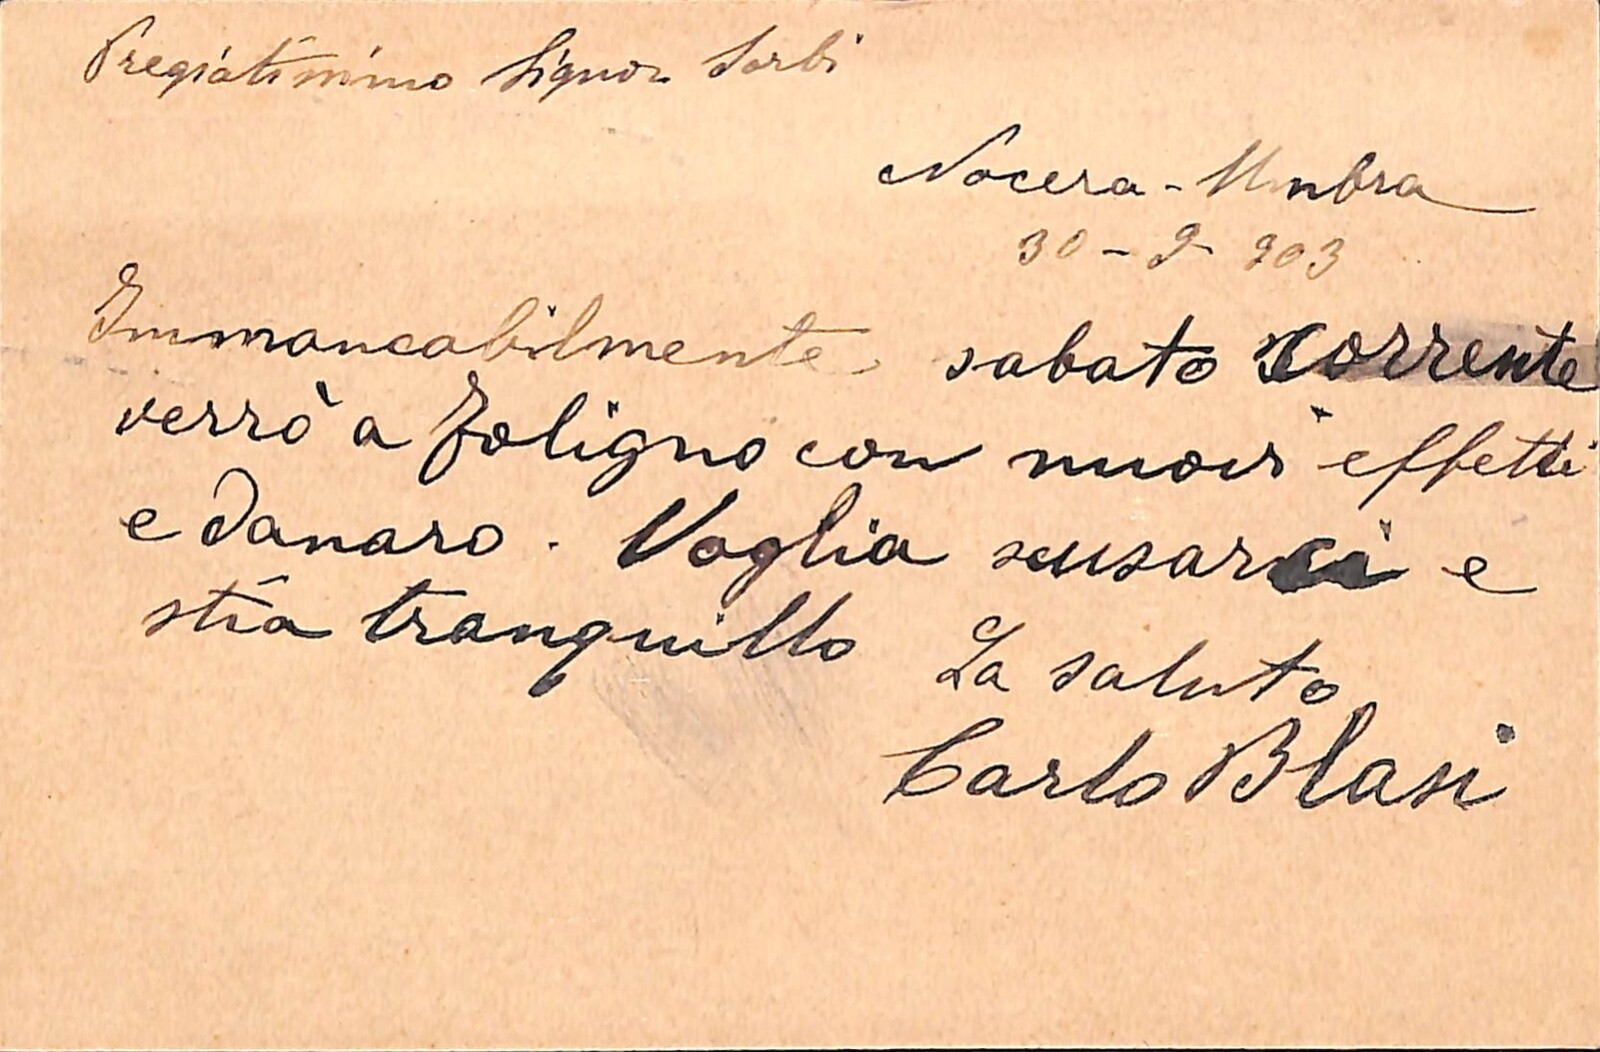 Pregiatissimo Signor Sorbi
Nocera-Umbra
30-9-903
Immancabilmente sabato corrente
verrò a Foligno con nuovi effetti
e danaro. Voglia scusarci e
stia tranquillo
La saluto
Carlo Blasi